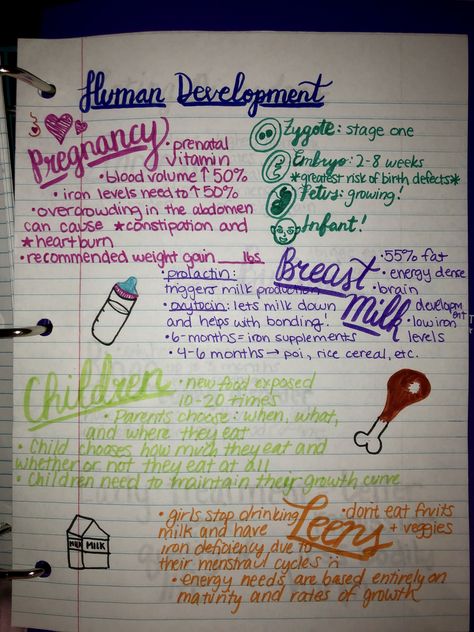 Human Development
Pregnancy
• prenatal
vitamin
• blood volume ↑ 50%
• iron levels need to ↑ 50%
• overcrowding in the abdomen
can cause *constipation and
*heartburn
• recommended weight gain ___ lbs.
Zygote: stage one
Embryo: 2-8 weeks
*greatest risk of birth defects*
Fetus: growing!
Infant!
Breast
Milk
• prolactin:
triggers milk production
• oxytocin: lets milk down
and helps with bonding!
• 6-months = iron supplements
• 4-6 months → poi, rice cereal, etc.
• 55% fat
• energy dense
• brain
development
• low iron
levels
Children
• new food exposed
10-20 times
• Parents choose: when, what,
and where they eat
• Child chooses how much they eat and
whether or not they eat at all
• Children need to maintain their growth curve
Teens
• girls stop drinking
milk and have
iron deficiency due to
their menstrual cycles :(
• dont eat fruits
+ veggies
• energy needs are based entirely on
maturity and rates of growth
MILK
MILK